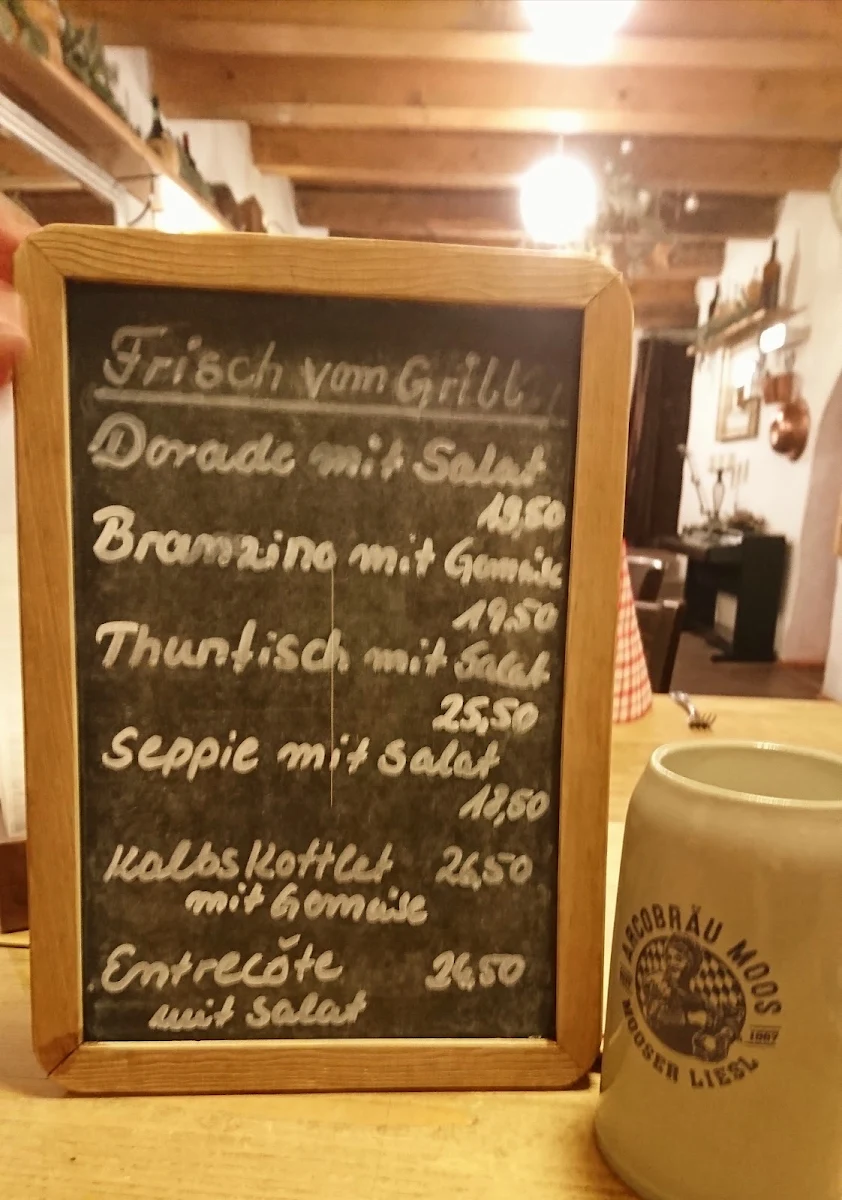 Frisch vom Grill
Dorade mit Salat
19,50
Branzino mit Gemüse
19,50
Thunfisch mit Salat
25,50
Seppie mit Salat
18,50
KalbsKottlet 26,50
mit Gemüse
Entrecôte 26,50
mit Salat
ARCOBRÄU MOOS
MOOSER LIESL